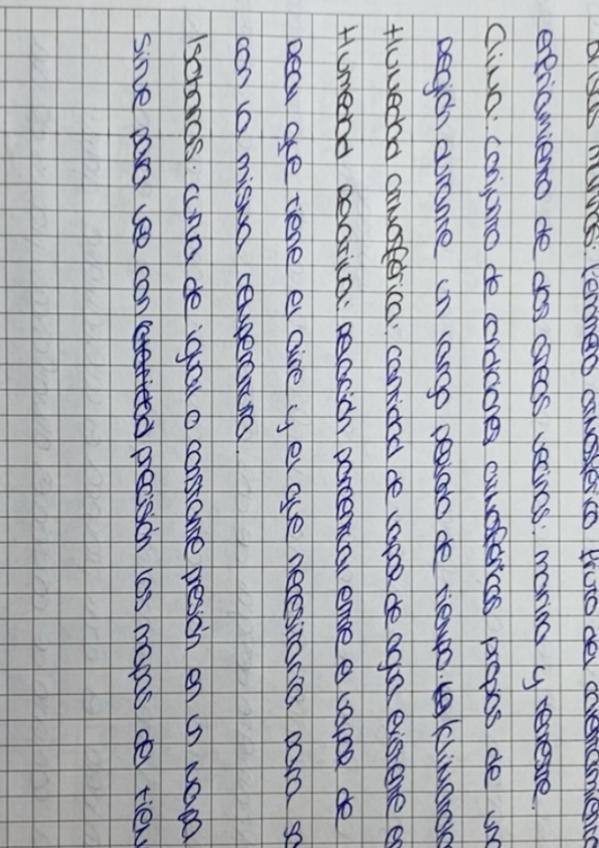 Brisas marinas: fenómeno atmosférico fruto del calentamiento
enfriamiento de dos áreas vecinas: marina y terrestre.
Clima: conjunto de condiciones atmosféricas propias de un
región durante un largo periodo de tiempo.
Humedad atmosférica: cantidad de vapor de agua existente e
Humedad relativa: relación porcentual entre el vapor de
real que tiene el aire y el que necesitaría para sa
con la misma temperatura.
Isobaras: curva de igual o constante presión en un mapa
Sirve para ver con precisión los mapas del tiem